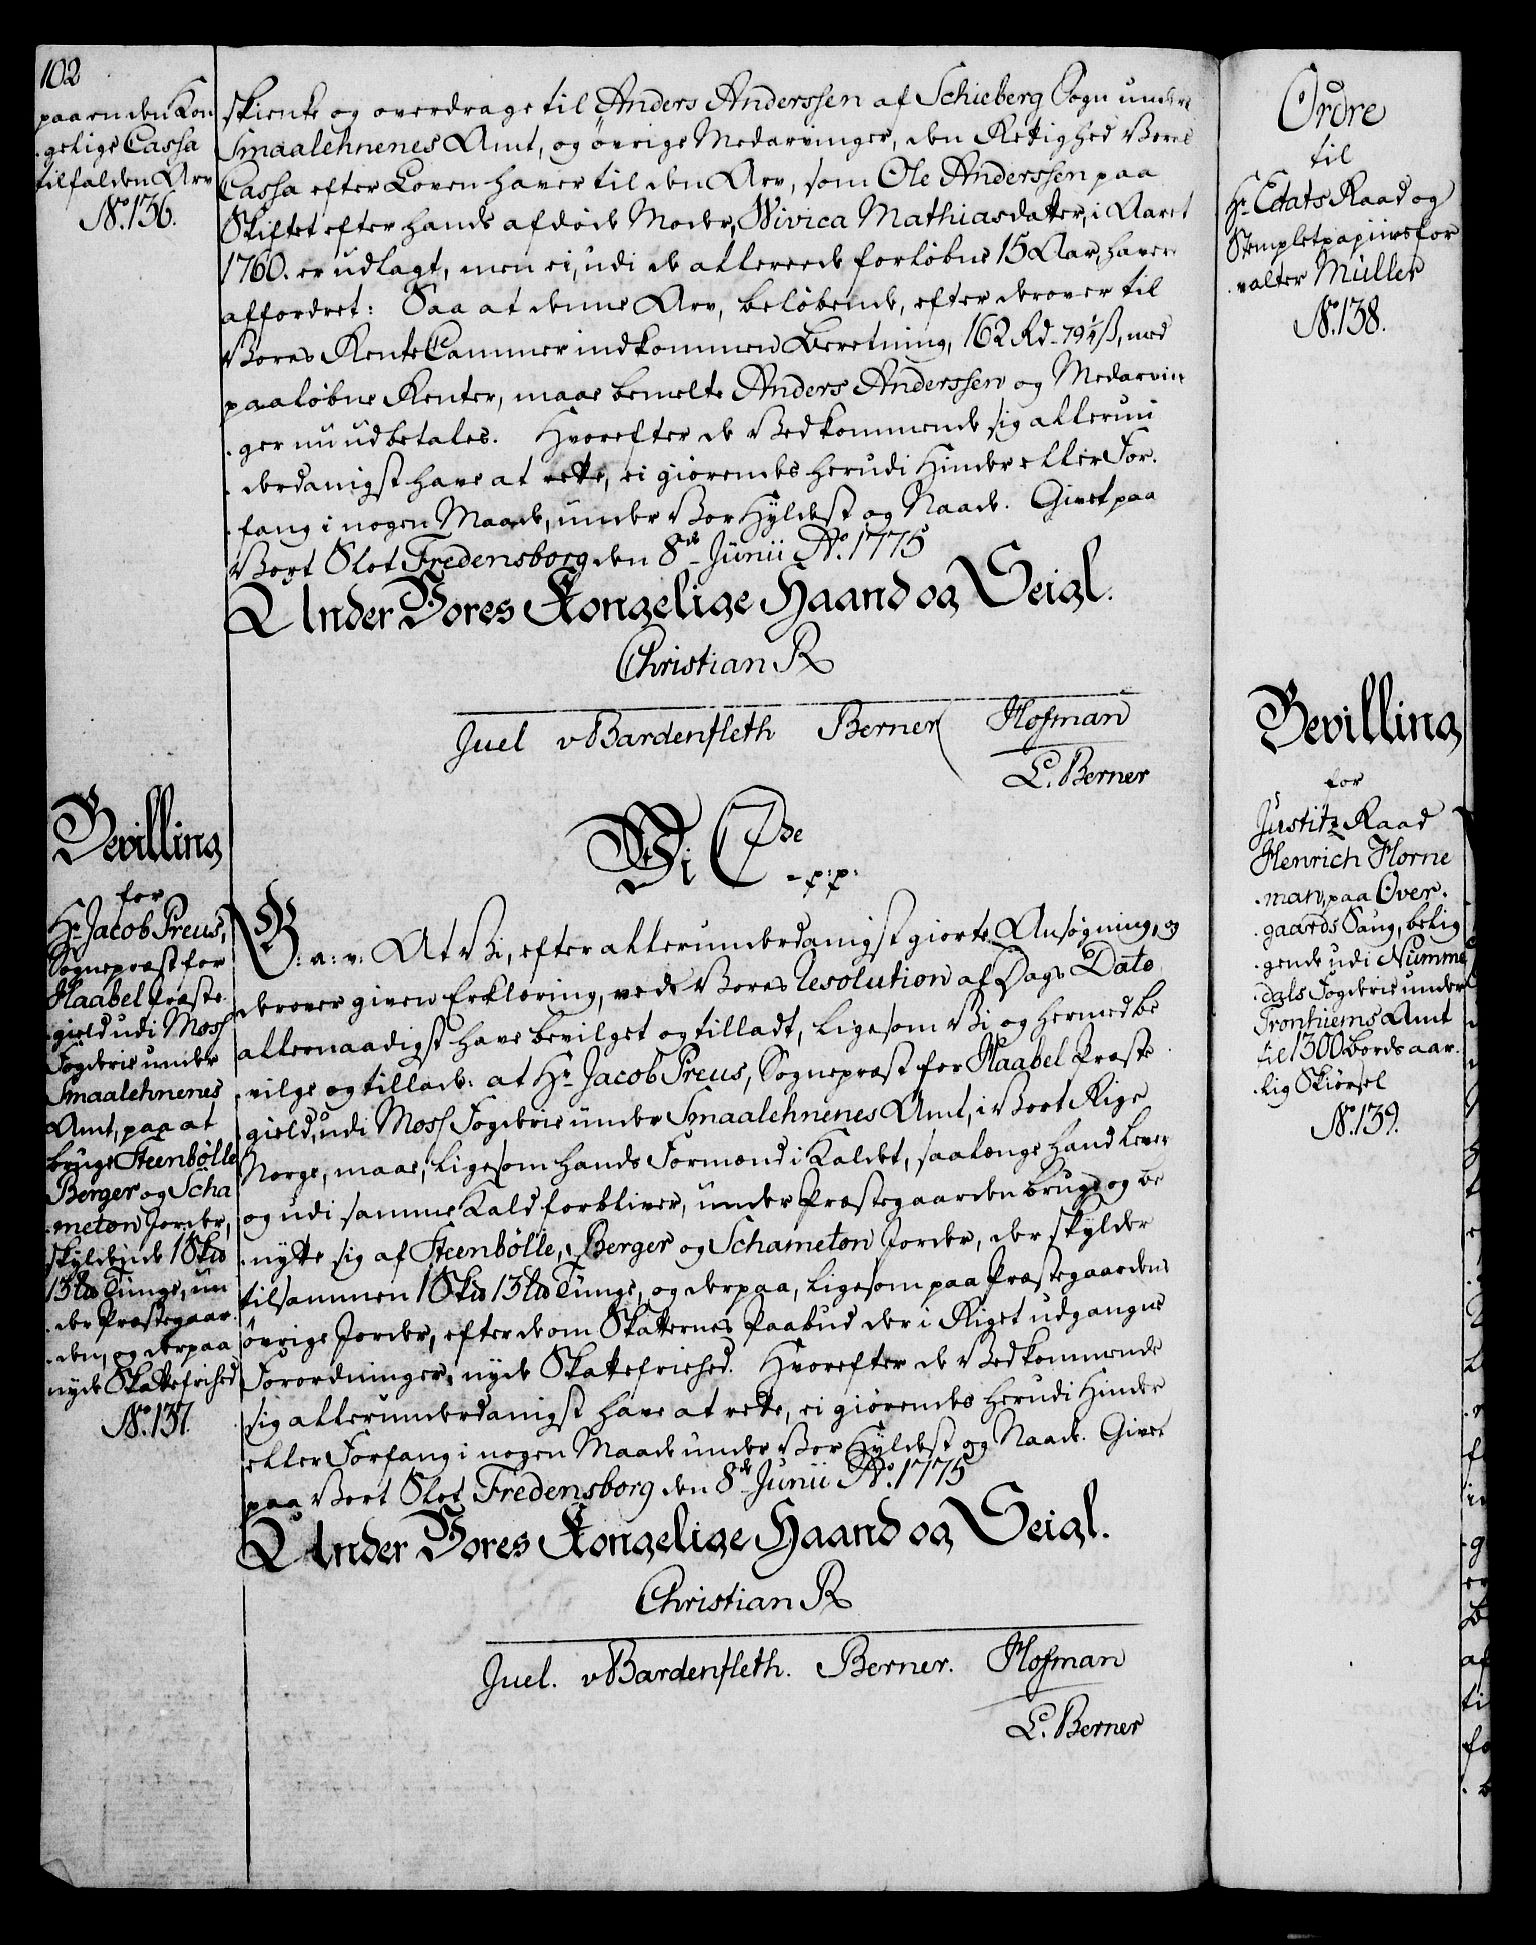 102
paa en den Kon
gelige Cassa
tilfalden Arv
No. 136.
skienke og overdrage til Anders Anderssen af Schieberg Sogn under
Smaalehnenes Amt, og øvrige Medarvinger, den Rettighed Vores
Cassa efter Loven haver til den Arv, som Ole Anderssen paa
Skiftet efter hands afdøde Moder, Wivica Mathiasdatter, i Aaret
1760. er udlagt, men ei, udi de allereede forløbne 15 Aar, haver
affordret: Saa at denne Arv, beløbende, efter derover til
Vores Rente Cammer indkommen Beretning, 162 Rd. 79¼ ß, med
paaløbne Renter, maae bemelte Anders Anderssen og Medarvin
ger nu udbetales. Hvorefter de Vedkommende sig allerun
derdanigst have at rette, ei giørendes herudi Hinder eller For-
fang i nogen Maade, under Vor Hyldest og Naade. Givet paa
Vort Slot Fredensborg den 8de Junii Ao. 1775
Under Vores Kongelige Haand og Seigl.
Christian R
Juel vBardenfleth Berner Hofman
L. Berner
Bevilling
for
Hr. Jacob Preus,
Sognepræst for
Haabel Præste
gield udi Moss
Fogderie under
Smaalehnenes
Amt, paa at
bruge Steenbølle
Berger og Scha
meton Jorder,
skyldende 1 Sk℔
13 L℔ Tunge, un
der Præstegaar
den, og derpaa
nyde Skattefrihed
No. 137.
Wi C 7de
- p: p:
G: a: v: At Vi, efter allerunderdanigst giorte Ansøgning, og
derover given Erklæring, vede Vores Resolution af Dags Dato
allernaadigst have bevilget og tilladt, ligesom Vi og hermed be
vilge og tillade: at Hr. Jacob Preus, Sognepræst for Haabel Præste
gield, udi Moss Fogderie under Smaalehnenes Amt, i Vort Rige
Norge, maae, ligesom hands Formænd i Kaldet, saalænge hand lever
og udi samme Kald forbliver, under Præstegaarden bruge og be
nytte sig af Steenbølle, Berger og Schameton Jorder, der skylder
tilsammen 1 Sk℔ 13 L℔ Tunge, og derpaa, ligesom paa Præstegaardens
øvrige Jorder, efter de om Skatternes Paabud der i Riget udgangne
Forordninger, nyde Skattefriehed. Hvorefter de Vedkommende
sig allerunderdanigst have at rette, ei giørendes herudi Hinder
eller Forfang i nogen Maade under Vor Hyldest og Naade. Givet
paa Vort Slot Fredensborg den 8de Junii Ao. 1775
Under Vores Kongelige Haand og Seigl.
Christian R
Juel. vBardenfleth. Berner. Hofman
L. Berner
Ordre
til
Hr. Etats Raad og
Stempletpapiirsfor
valter Müller
No. 138.
Bevilling
for
Justitz Raad
Henrich Horne
man, paa Over-
gaards Saug, belig
gende udi Numme
dals Fogderie under
Tronhiems Amt
til 1300 Bords aar-
lig Skiørsel
No. 139.